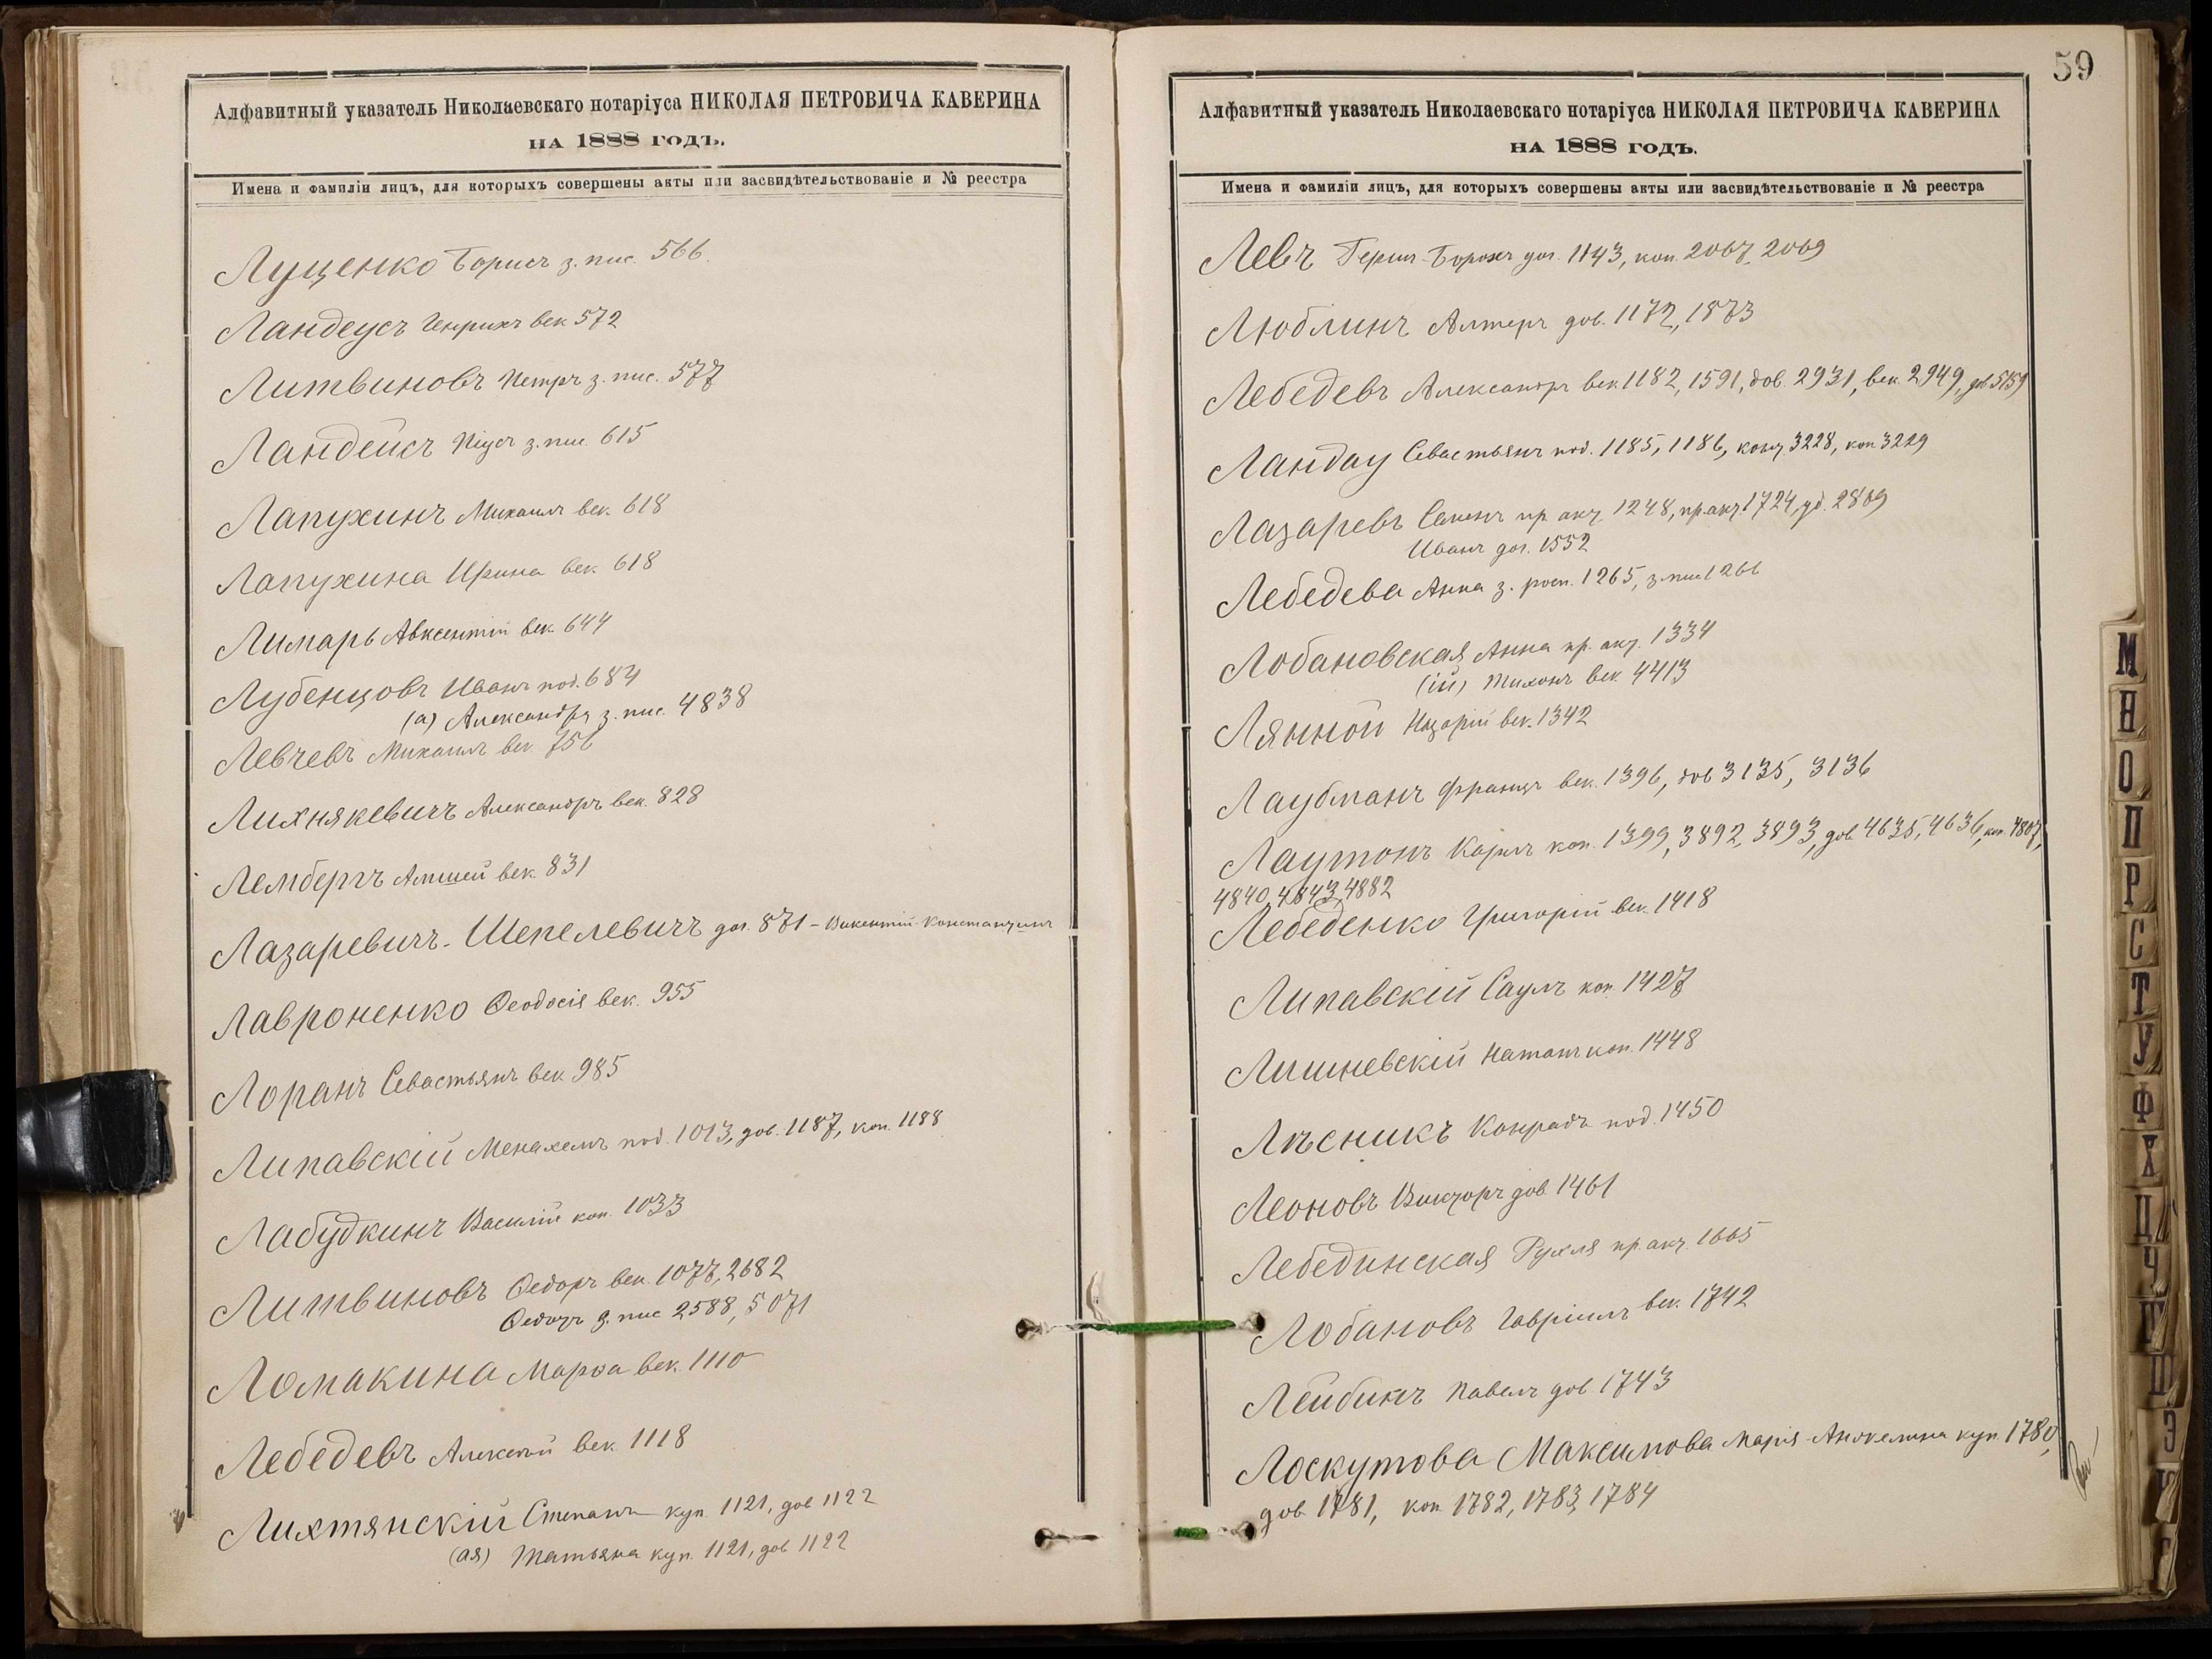 Алфавитный указатель Николаевскаго нотаріуса НИКОЛАЯ ПЕТРОВИЧА КАВЕРИНА
НА 1888 ГОДЪ.
Имена и фамиліи лицъ, для которыхъ совершены акты или засвидѣтельствованіе и № реестра
Луценко Борисъ з. пис. 566.
Ландеусъ Генрихъ век 572
Литвиновъ Петръ з. пис. 577
Ландейсъ Піусъ з. пис. 615
Лапухинъ Михаилъ век. 618
Лапухина Ирина век. 618
Лимарь Авксентій век. 644
Лубенцовъ Иванъ под. 684
(а) Александра з. пис. 4838
Левчевъ Михаилъ век. 756
Лихнякевичъ Александръ век. 828
Лембергъ Амшей век. 831
Лазаревичъ-Шепелевичъ дог. 871 - Викентій-Константинъ
Лавроненко Ѳеодосія век. 955
Лоранъ Севастьянъ век 985
Липавскій Менахемъ под. 1013, дов. 1187, коп. 1188
Лабудкинъ Василій коп. 1033
Литвиновъ Ѳедоръ век. 1077, 2682
Ѳедоръ з. пис 2588, 5071
Ломакина Марѳа век. 1110
Лебедевъ Алексѣй век. 1118
Лихтянскій Степанъ куп. 1121, дов 1122
(ая) Татьяна куп. 1121, дов 1122
59
Алфавитный указатель Николаевскаго нотаріуса НИКОЛАЯ ПЕТРОВИЧА КАВЕРИНА
НА 1888 ГОДЪ.
Имена и фамиліи лицъ, для которыхъ совершены акты или засвидѣтельствованіе и № реестра
Левъ Герш-Борохъ дог. 1143, коп. 2067, 2069
Люблинъ Алтеръ дов. 1172, 1573
Лебедевъ Александръ век. 1182, 1591, дов. 2931, век. 2949, дов 5159
Ландау Севастьянъ под. 1185, 1186, 3228, коп 3229
Лазаревъ Семенъ пр. акц. 1248, пр. акц. 1724, 2869
Иванъ дог. 1552
Лебедева Анна з. росп. 1265, з. пис 1266
Лобановская Анна пр. акц. 1334
(ій) Тихонъ век. 4413
Лянной Назарій век. 1342
Лаубманъ Францъ век. 1396, дов 3135, 3136
Лаутонъ Карлъ коп. 1399, 3892, 3893, дов 4635, 4636, коп. 4807,
4840, 4843, 4882
Лебеденко Григорій век. 1418
Липавскій Саулъ коп. 1427
Лишневскій Натанъ коп. 1448
Лѣсникъ Конрадъ под. 1450
Леоновъ Викторъ дов. 1461
Лебединская Рухля пр. акц. 1665
Лобановъ Гавріилъ век. 1742
Лейбинъ Павелъ дов. 1743
Лоскутова Максимова Марія-Анжелина куп. 1780,
дов 1781, коп 1782, 1783, 1784
М
Н
О
П
Р
С
Т
У
Ф
Х
Ц
Ч
Ш
Э